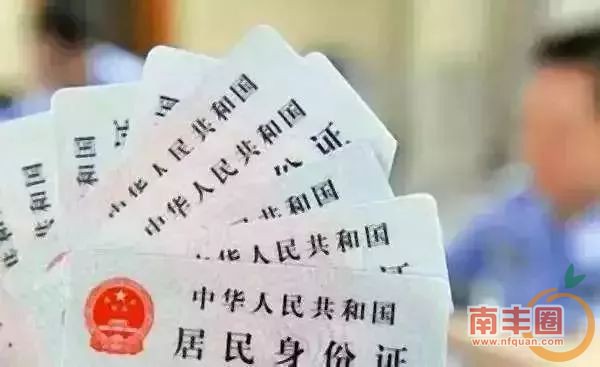 共和国
和国
中华人民共和国
中华人民共和国
证
份证
中华人民共和国
中华人民共和国
居民身份证
南丰圈
www.nfquan.com